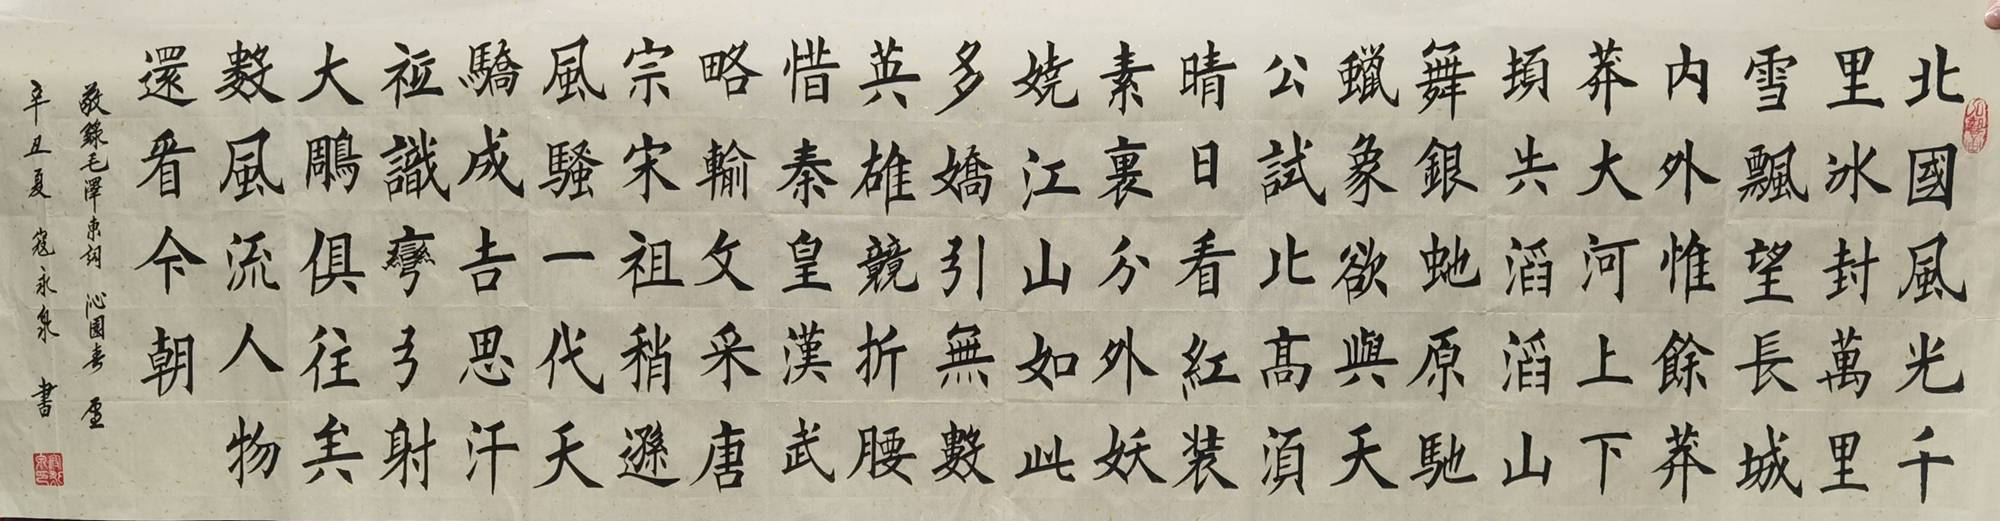 北國風光千
里冰封萬里
雪飄望長城
内外惟餘莽
莽大河上下
頓失滔滔山
舞銀虵原馳
蠟象欲與天
公試比高須
晴日看紅装
素裹分外妖
嬈江山如此
多嬌引無數
英雄競折腰
惜秦皇漢武
略輸文采唐
宗宋祖稍遜
風騷一代天
驕成吉思汗
祗識彎弓射
大鵰俱往矣
數風流人物
還看今朝
敬錄毛澤東詞 沁園春 雪
辛丑夏 寇永泉 書